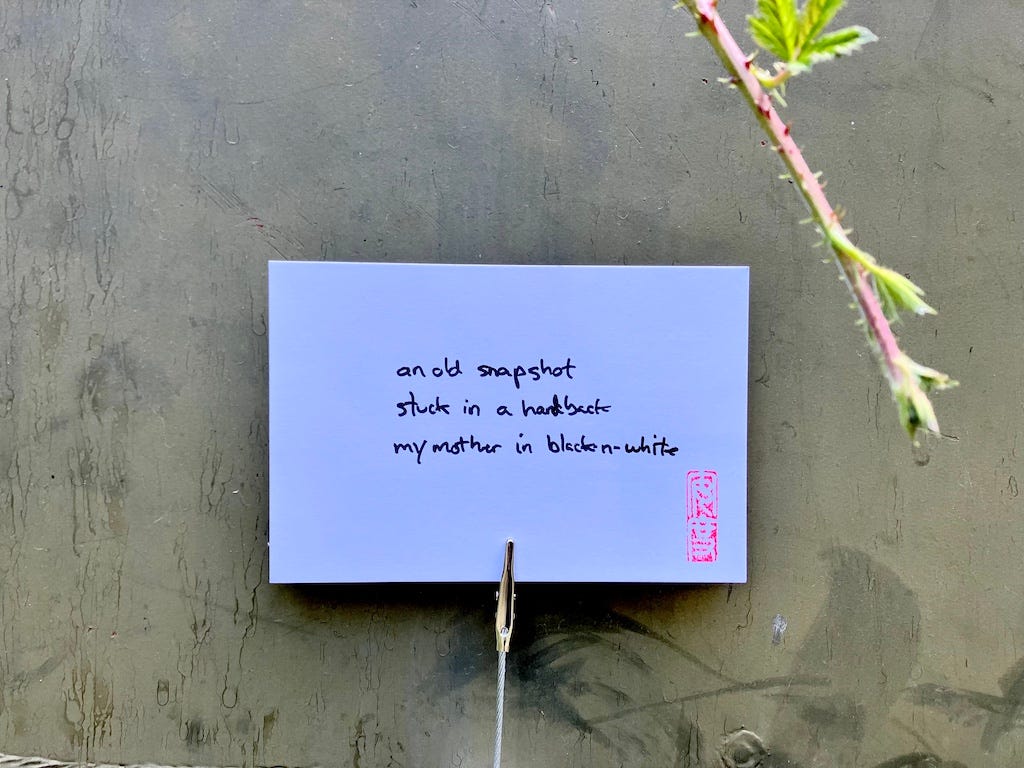 an old snapshot
stuck in a hardback
my mother in black-n-white